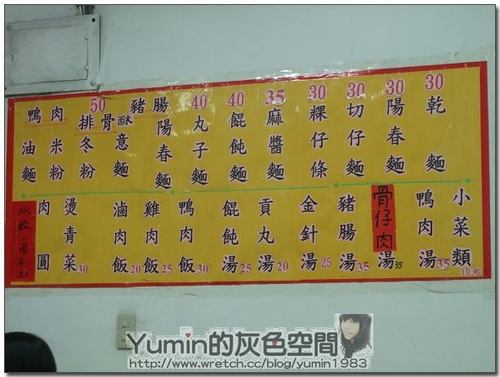 30 乾麵
30 陽春麵
30 切仔麵
30 粿仔條
35 麻醬麵
40 餛飩麵
40 丸子麵
50
鴨肉 排骨酥 豬腸
陽春麵
意麵
冬粉
米粉
油麵
小菜類
鴨肉湯35
骨仔肉湯35
豬腸湯35
金針湯25
貢丸湯20
餛飩湯25
鴨肉飯30
雞肉飯25
滷肉飯20
燙青菜30
肉圓
Yumin的灰色空間
http://www.wretch.cc/blog/yumin1983